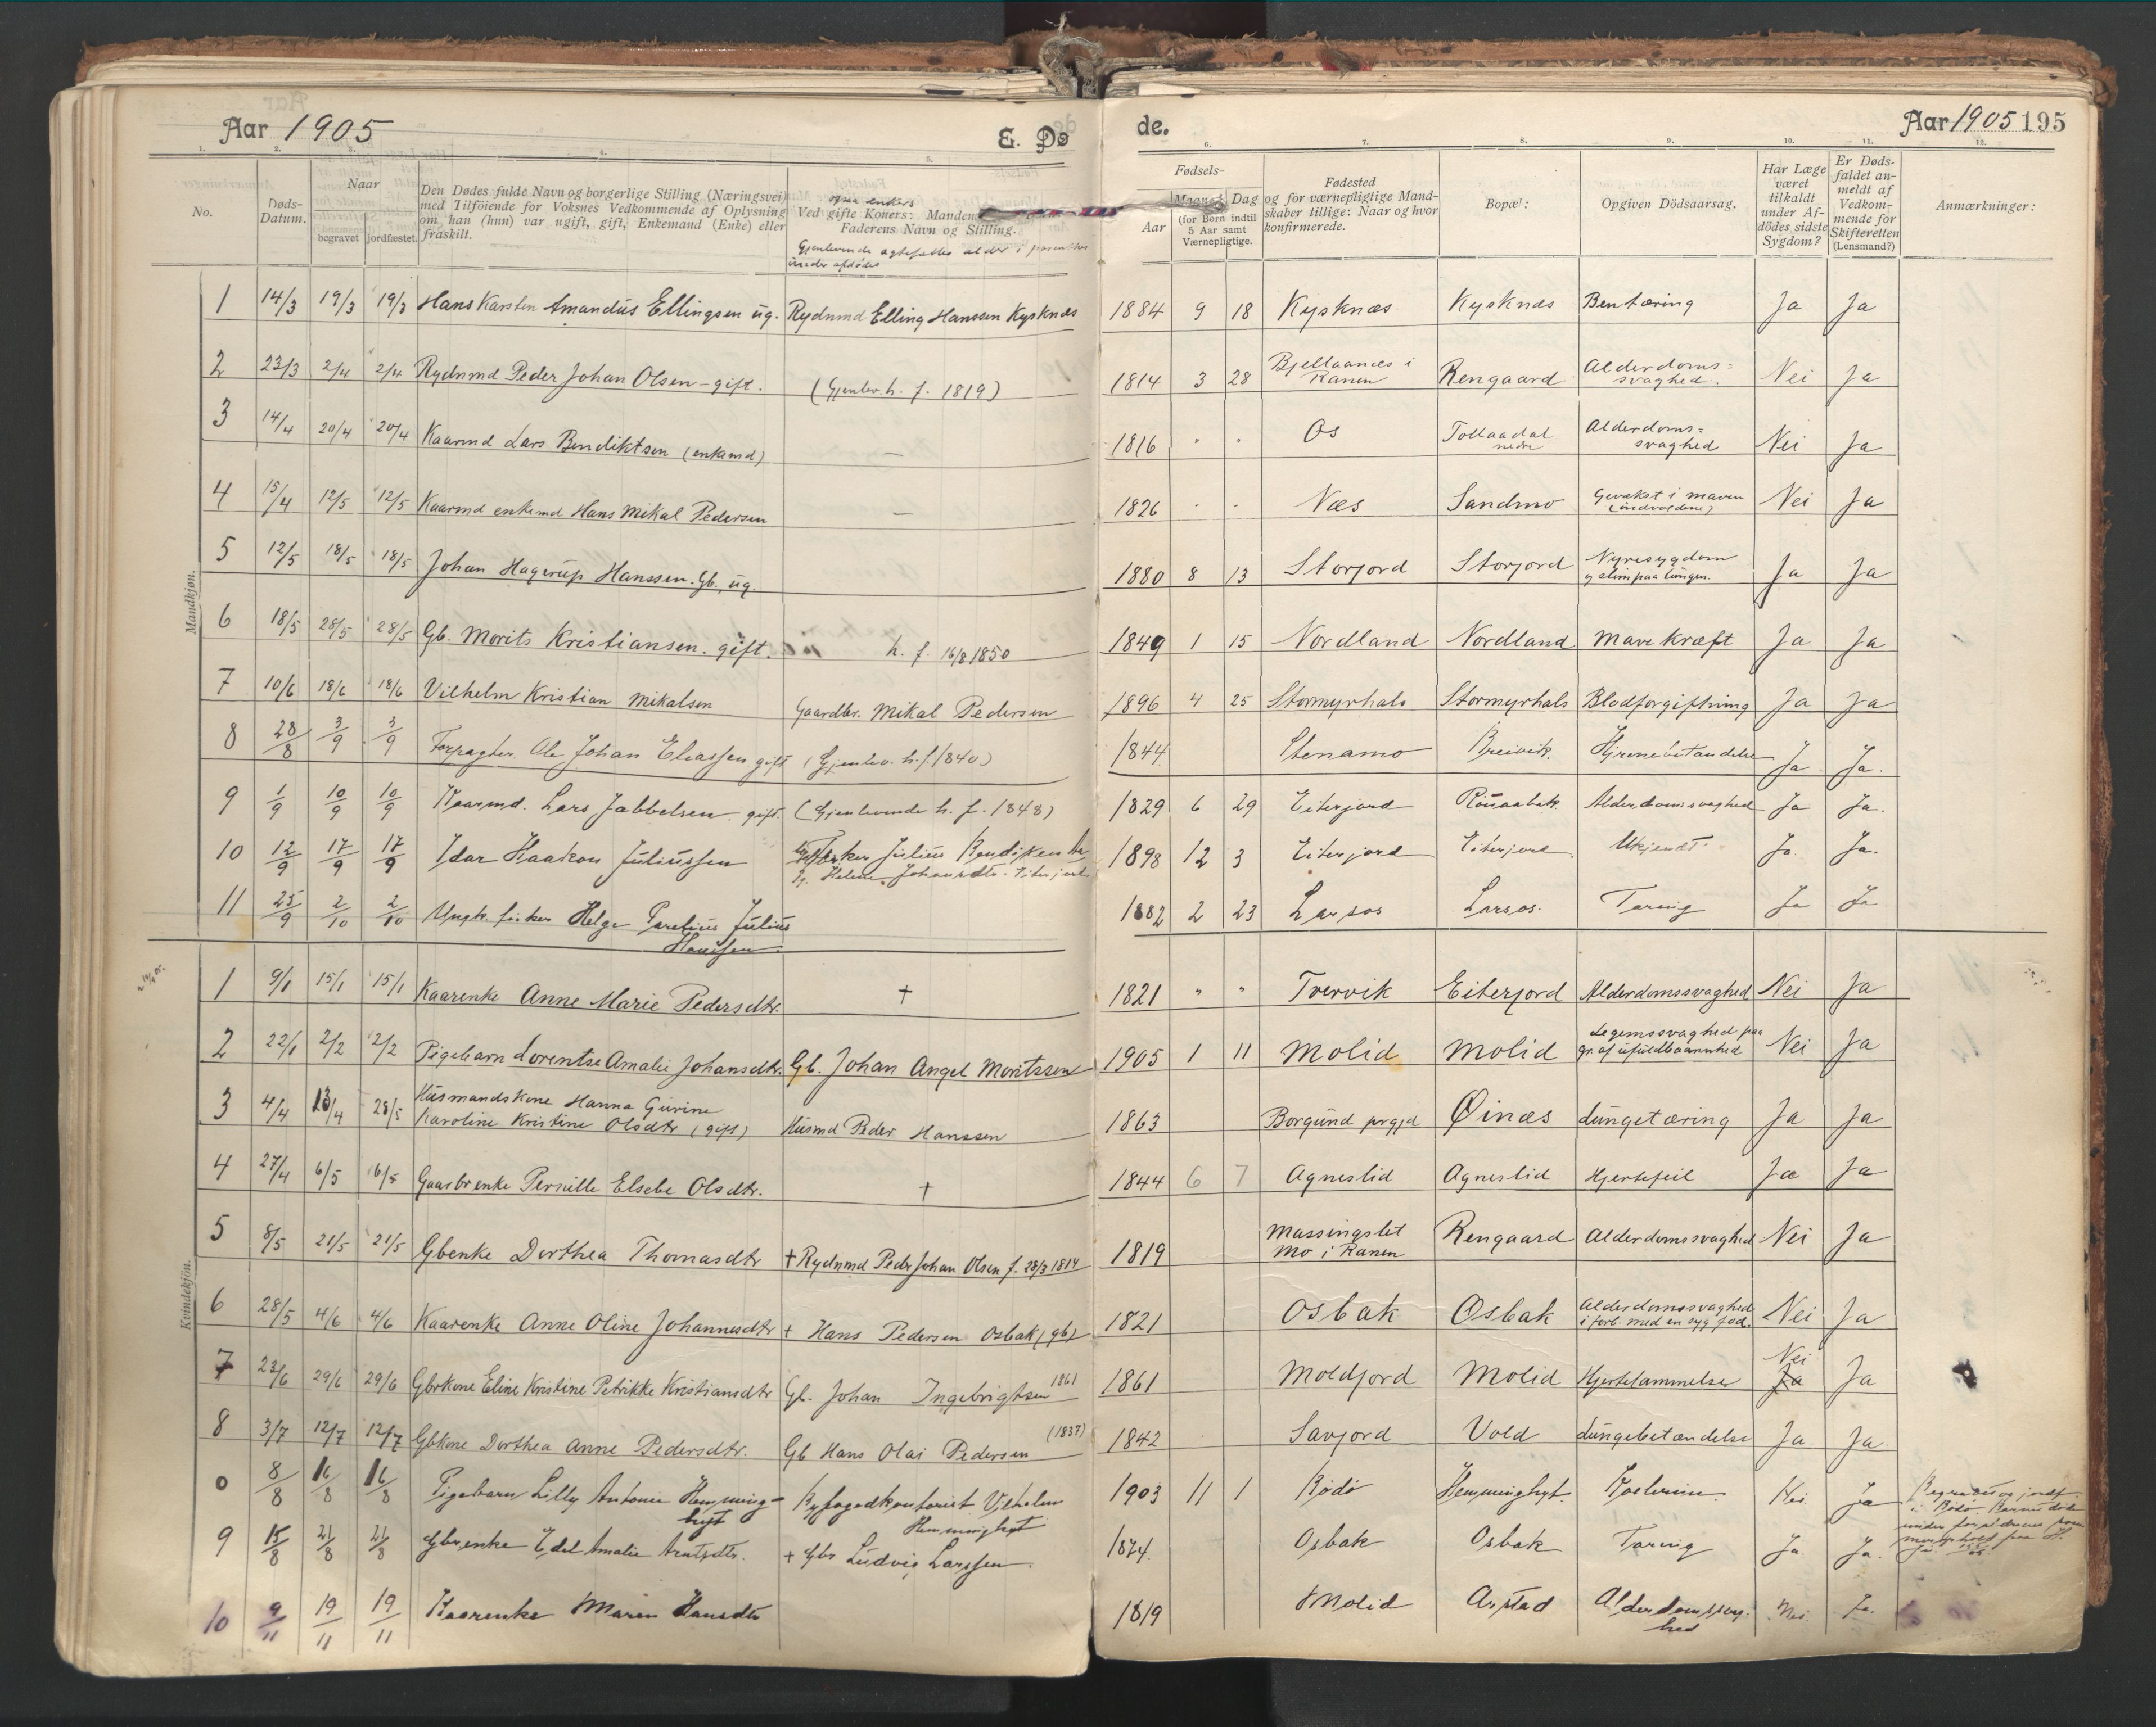 Aar 1905 E. Dö
de. Aar 1905 195
1. 2. 3. 4. 5. 6. 7. 8. 9. 10. 11. 12.
No.
Døds-Datum.
Naar
begravet
jordfæstet.
Den Dødes fulde Navn og borgerlige Stilling (Næringsvei)
med Tilföiende for Voksnes Vedkommende af Oplysning
om han (hun) var ugift, gift, Enkemand (Enke) eller
fraskilt.
ogsaa enkers
Ved gifte Koners: Mandens
Faderens Navn og Stilling.
Gjenlevende ægtefælles alder i parenthes
under afdöde
Fødsels-
Aar
Maaned
Dag
(for Børn indtil
5 Aar samt
Værnepligtige.
Fødested
og for værnepligtige Mand-
skaber tillige: Naar og hvor
konfirmerede.
Bopæl:
Opgiven Dödsaarsag.
Har Læge
været
tilkaldt
under Af-
dödes sidste
Sygdom?
Er Døds-
faldet an-
meldt af
Vedkom-
mende for
Skifteretten
(Lensmand?)
Anmærkninger:
Mandkjøn.
1 14/3 19/3 19/3 Hans Karstin Amandus Ellingsen ug. Rydnmd Elling Hanssen Kysknæs 1884 9 18 Kysknæs Kysknæs Bentæring Ja Ja
2 23/3 2/4 2/4 Rydnmd Peder Johan Olsen - gift. (Gjenlev. h. f. 1819) 1814 3 28 Bjellaanæs i Ranen Rengaard Alderdoms=svaghed. Nei Ja
3 14/4 20/4 20/4 Kaarmd Lars Bendiktsen (enkemd) — 1816 " " Os Tollaadal nedre Alderdoms=svaghed Nei Ja
4 15/4 12/5 12/5 Kaarmd enkemd Hans Mikal Pedersen — 1826 " " Næs Sandmo Gevækst i maven (indvoldene) Nei Ja
5 12/5 18/5 18/5 Johan Hagerup Hanssen. Gb. ug. 1880 8 13 Storjord Storjord Nyresygdom og slim paa lungen. Ja Ja
6 18/5 28/5 28/5 Gb. Morits Kristiansen. gift. h. f. 16/8 1850 1849 1 15 Nordland Nordland Mavekræft Ja Ja
7 10/6 18/6 18/6 Vilhelm Kristian Mikalsen Gaardbr. Mikal Pedersen 1896 4 25 Stormyrhals Stormyrhals Blodforgiftning Ja Ja
8 28/8 3/9 3/9 Forpagter Ole Johan Eliassen gift (Gjenlev. h. f. 1840) 1844 Stenamo Breivik. Hjernebetændelse Ja Ja.
9 1/9 10/9 10/9 Kaarmd. Lars Jabbelsen. gift. (Gjenlevende h. f. 1848) 1829 6 29 Eiterjord Alderdomssvaghed Ja Ja.
10 12/9 17/9 17/9 Idar Haakon Juliussen Julius 1898 12 3 Eiterjord Eiterjord Ukjendt Ja. Ja.
11 25/9 2/10 2/10 Ungk. fisker Helge Parelius Julius
Hanssen. 1882 2 23 Larsos Larsos. Tæring Ja Ja
Kvindekjön.
1 9/1 15/1 15/1 Kaarenke Anne Marie Pedersdtr. + 1821 " " Tvervik Eiterjord Alderdomssvaghed Nei Ja
2 22/1 2/2 2/2 Pigebarn Lorentse Amalie Johansdtr. Gb. Johan Angel Moritssen 1905 1 11 Molid Molid Legemssvaghed paa gr. af ufuldbaarenhed Nei Ja
3 4/4 13/4 28/5 Husmandskone Hanna Gurine
Karoline Kristine Olsdtr (gift) Husmd Peder Hanssen 1863 Borgund prgjd Øinæs Lungetæring Ja Ja
4 27/4 6/5 6/5 Gaardbrenke Pernille Elsebe Olsdtr. + 1844 6 7 Agneslid Agneslid Hjertefeil Ja Ja
5 8/5 21/5 21/5 Gbenke Dorthea Thomasdtr + Rydnmd Peder Johan Olsen f. 28/3 1814 1819 Massingslet Mo i Ranen Rengaard Alderdomssvaghed Nei Ja
6 28/5 4/6 4/6 Kaarenke Anne Oline Johannesdtr + Hans Pedersen Osbak (gb) 1821 Osbak Osbak Alderdomssvaghed i forb. med en syg fod. Nei Ja
7 23/6 29/6 29/6 Gbrkone Eline Kristine Petrikke Kristiansdtr Gb. Johan Ingebrigtsen 1861 1861 Moldjord Molid Hjertelammelse Nei Ja Ja
8 3/7 12/7 12/7 Gbkone Dorthea Anne Pedersdtr. Gb Hans Olai Pedersen (1837) 1842 Savjord Vold Lungebetændelse Ja Ja.
0 8/8 16/8 16/8 Pigebarn Lilly Antonie Hemming-
hyt Byfogedkontorist Vilhelm
Hemminghyt 1903 11 1 Bodö Hemminghyt. Nei. Ja Begravet og jordf.
i Bodö. Barnet döde
under forældrenes som-
merophold paa H.
9 15/8 21/8 21/8 Gbrenke Edel Amalie Arntsdtr. + Gbr Ludvig Larssen. 1874. Osbak Osbak Tæring Ja Ja.
10 9/11 19/11 19/11 Kaarenke Maren Hansdtr 1819 Molid Arstad Alderdomssvag-
hed Nei. Ja.